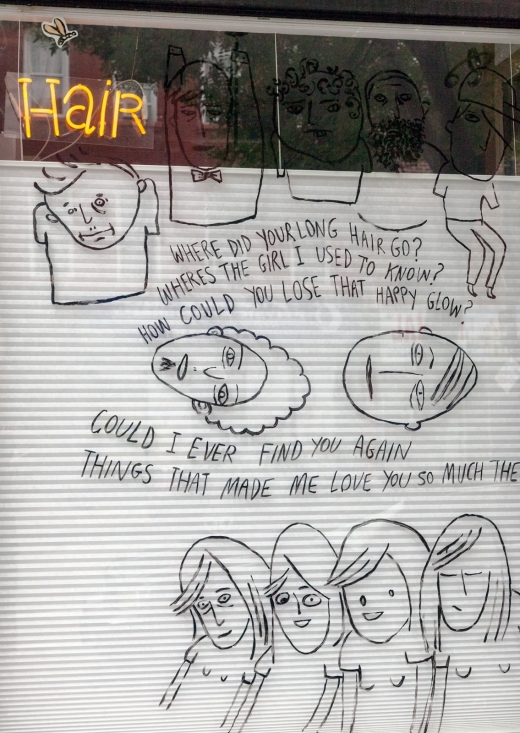 Hair
WHERE DID YOUR LONG HAIR GO?
WHERES THE GIRL I USED TO KNOW?
HOW COULD YOU LOSE THAT HAPPY GLOW?
COULD I EVER FIND YOU AGAIN
THINGS THAT MADE ME LOVE YOU SO MUCH THE